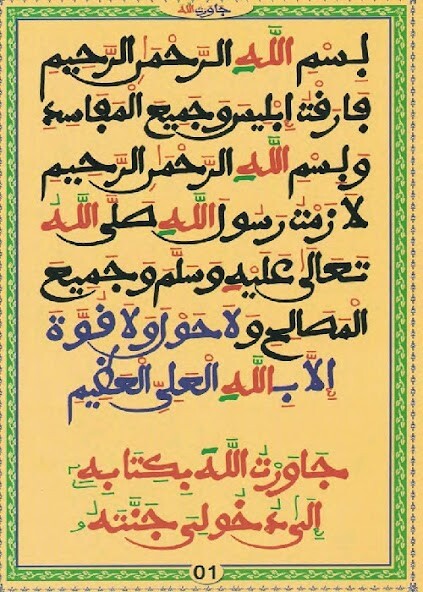 جاورت الله
بِسْمِ اللَّهِ الرَّحْمٰنِ الرَّحِيمِ
فَارَقْتُ إِبْلِيسَ وَجَمِيعَ الْمَفَاسِدِ
وَبِسْمِ اللَّهِ الرَّحْمٰنِ الرَّحِيمِ
لَازَمْتُ رَسُولَ اللَّهِ صَلَّى اللَّهُ
تَعَالَى عَلَيْهِ وَسَلَّمَ وَجَمِيعَ
الْمَصَالِحِ وَلَا حَوْلَ وَلَا قُوَّةَ
إِلَّا بِاللَّهِ الْعَلِيِّ الْعَظِيمِ
جَاوَرْتُ اللَّهَ بِكِتَابِهِ
خُوِّلَتْ جَنَّتَهُ
01